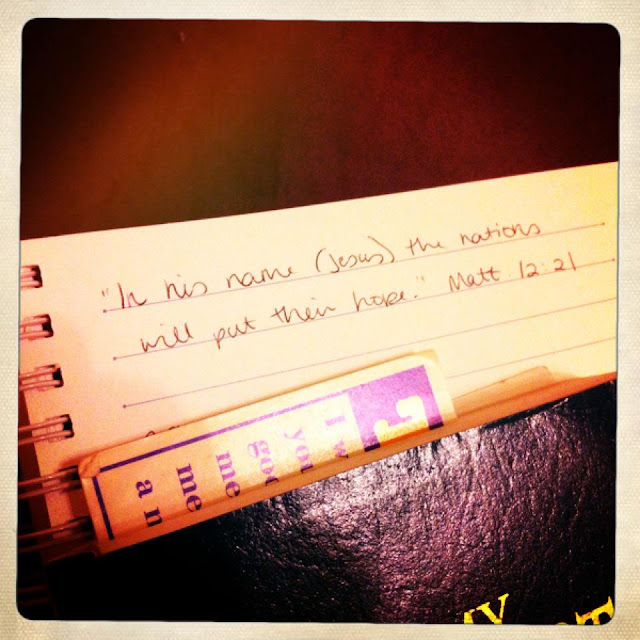 "In his name (Jesus) the nations
will put their hope." Matt 12:21
I w
you
goo
me
me
an